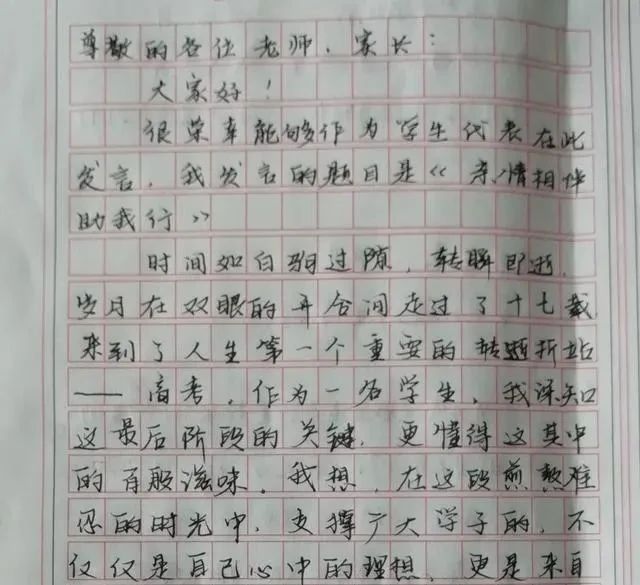 尊敬的各位老师、家长：
大家好！
很荣幸能够作为学生代表在此
发言，我发言的题目是《亲情相伴
助我行》
时间如白驹过隙，转瞬即逝，
岁月在双眼的开合间走过了十七载
来到了人生第一个重要的转折站
——高考，作为一名学生，我深知
这最后阶段的关键，更懂得这其中
的百般滋味。我想，在这段煎熬难
忍的时光中，支撑广大学子的，不
仅仅是自己心中的理想，更是来自